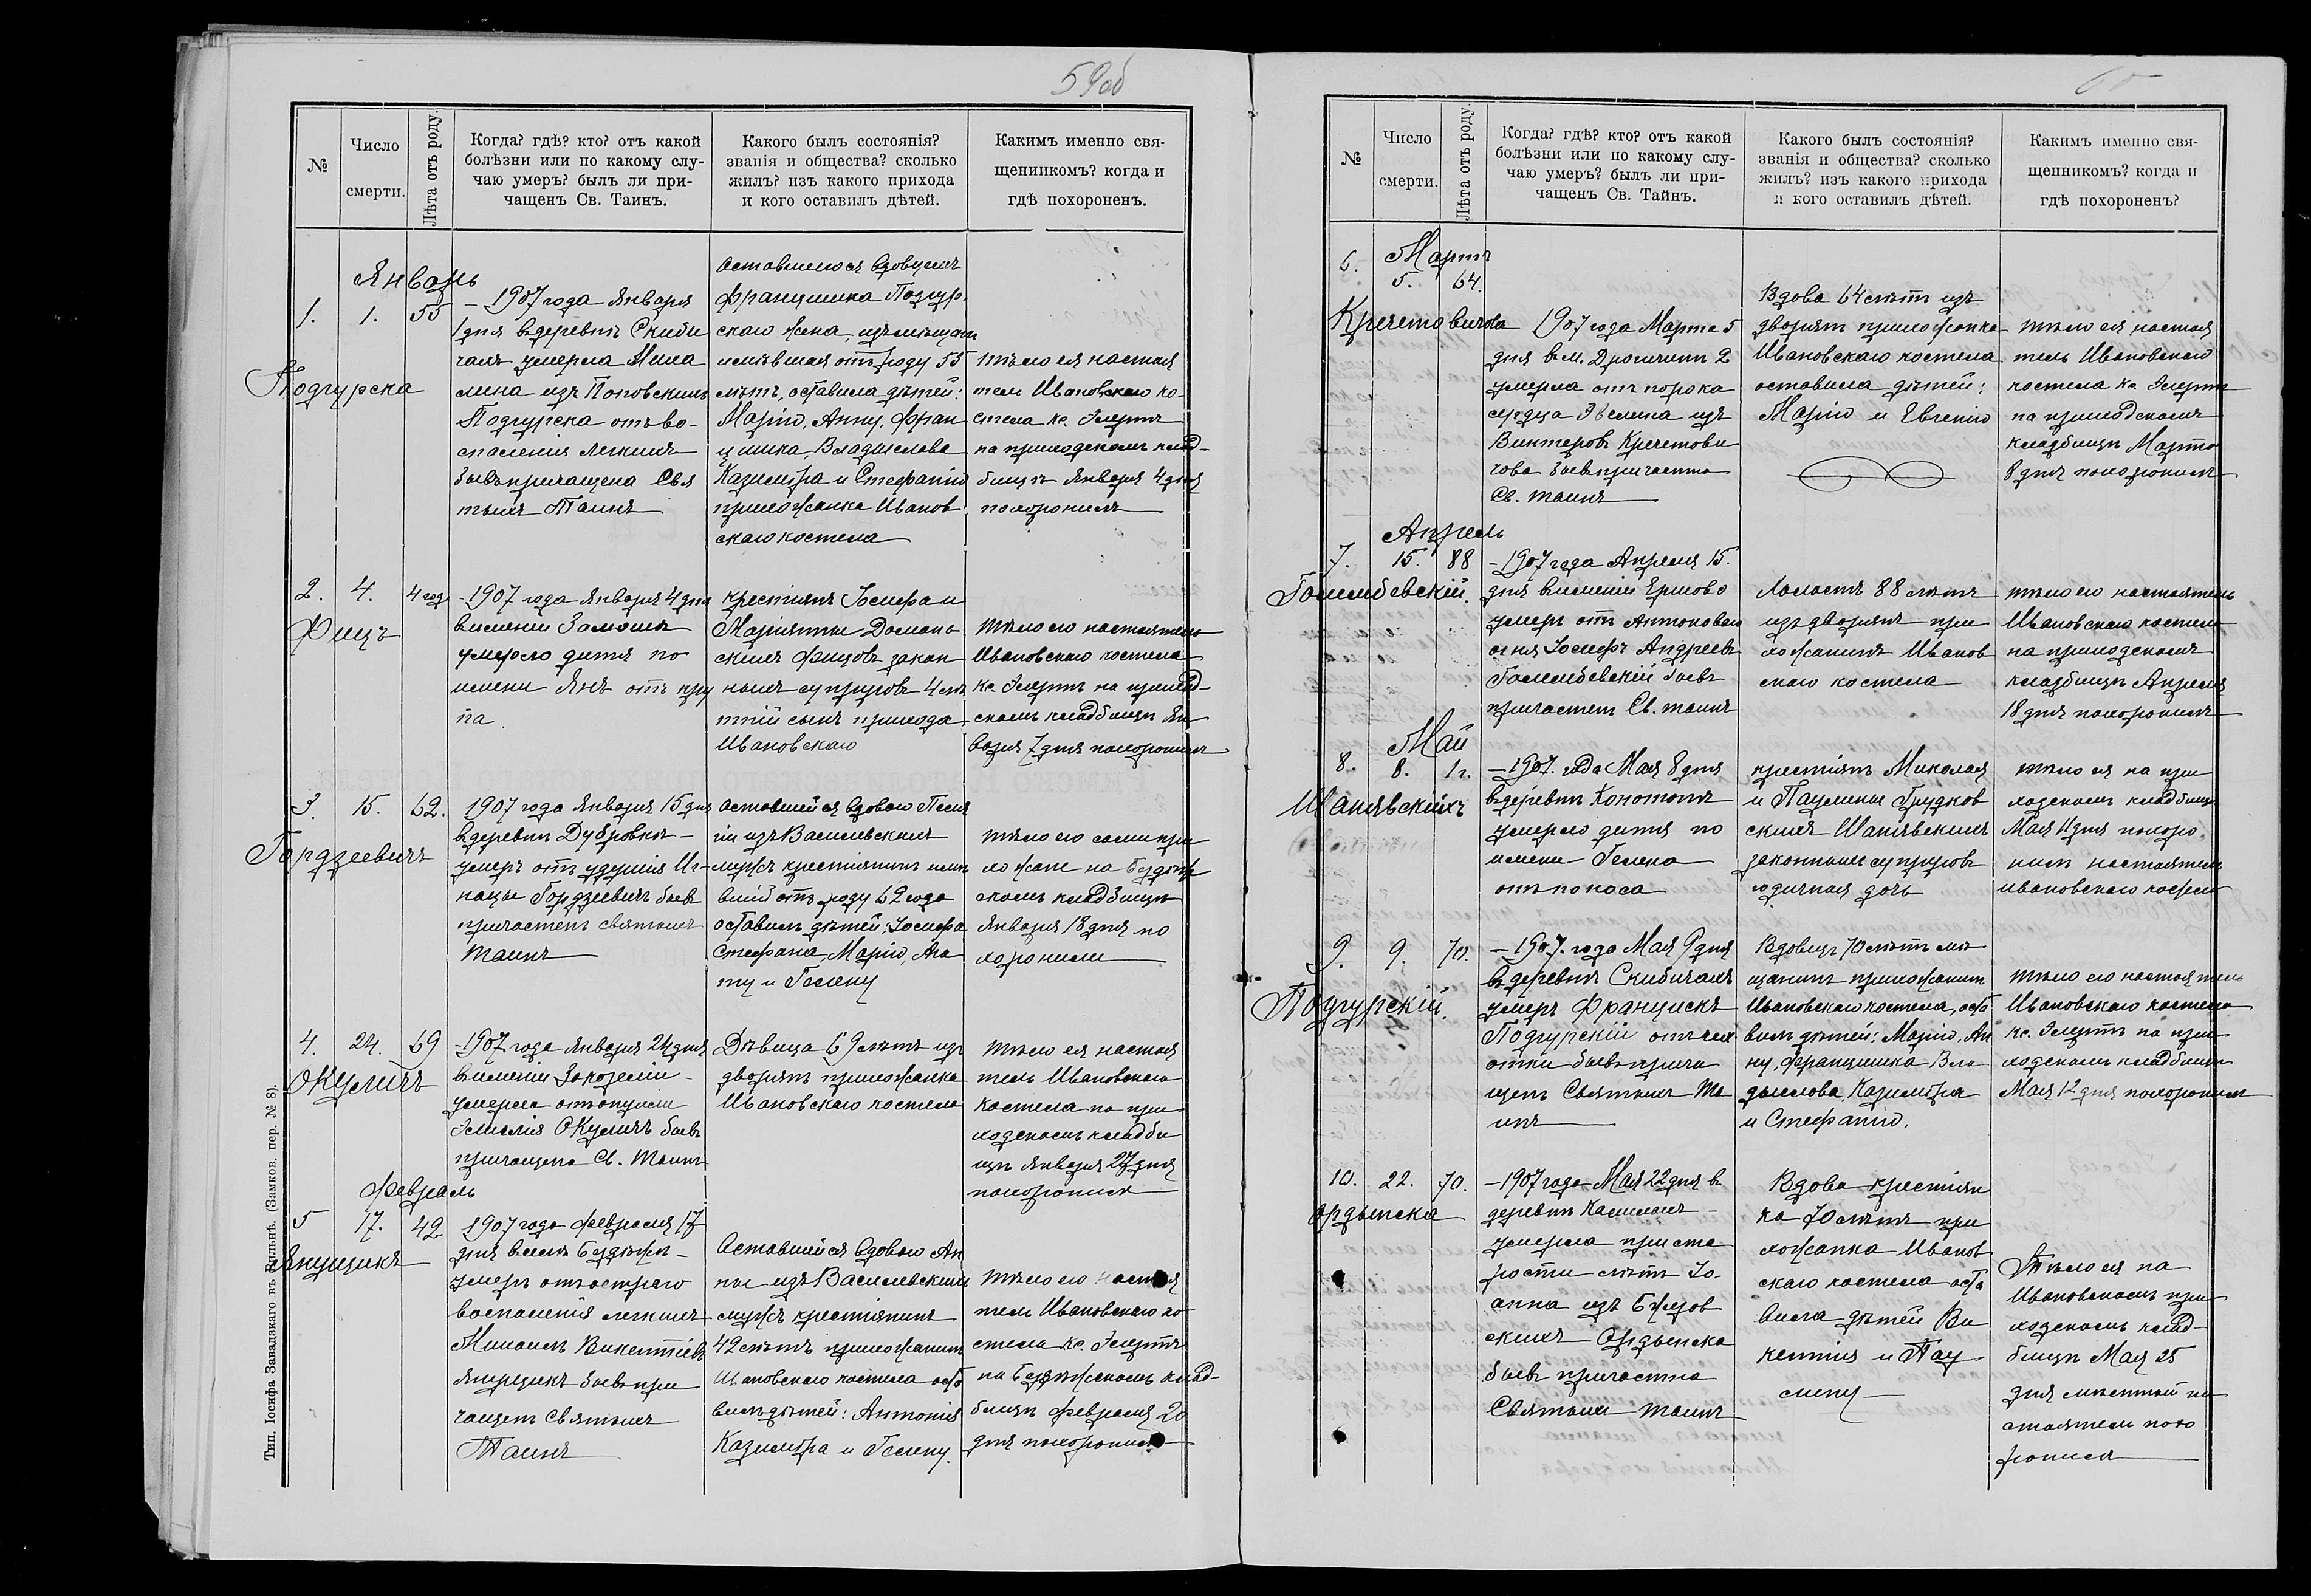 59об
№
Число
смерти.
Лѣта отъ роду.
Когда? гдѣ? кто? отъ какой
болѣзни или по какому слу-
чаю умеръ? былъ ли при-
чащенъ Св. Таинъ.
Какого былъ состоянія?
званія и общества? сколько
жилъ? изъ какого прихода
и кого оставилъ дѣтей.
Какимъ именно свя-
щенникомъ? когда и
гдѣ похороненъ.
Январь
1.
1.
55
Подгурска
– 1907 года Января
1 дня в деревнѣ Скиби
чахъ умерла Миха
лина изъ Поповскихъ
Подгурска отъ во-
спаленія легкихъ
бывъ причащена Свя
тыхъ Таинъ
Оставшегося вдовцемъ
Францишка Подгур
скаго жена, изъ мѣщан
имѣвшая отъ роду 55
лѣтъ, оставила дѣтей:
Марію, Анну, Фран
цишка, Владыслава
Казимѣра и Стефанію
прихожанка Иванов
скаго костела
тѣло ея настоя
тель Ивановскаго ко-
стела кс.
на приходскомъ клад-
бищѣ Января 4 дня
похоронилъ
2.
4.
4 год
Фицъ
– 1907 года Января 4 дня
в имѣніи Замошьѣ
умерло дитя по
имени Янъ отъ кру
па.
крестіянъ Іосифа и
Маріянны Домань
скихъ Фицовъ закон
ныхъ супруговъ 4 лѣ
тній сынъ прихода
Ивановскаго
тѣло его настоятель
Ивановскаго костела
кс. на приход-
скомъ кладбищѣ Ян
варя 7 дня похоронилъ
3.
15.
62.
Гордзеевичъ
1907 года Января 15 дня
в деревнѣ Дубровкѣ –
умеръ отъ удушія Иг-
нацы Гордзеевичъ бывъ
причастенъ святыхъ
таинъ
Оставшейся вдовою Пела
гіи изъ Василевскихъ
мужъ крестіянинъ имѣ
вшій отъ роду 62 года
оставилъ дѣтей: Іосифа
Стефана, Марію, Ага
ту и Гелену
тѣло его сами при
хожане на Бездѣж
скомъ кладбищѣ
Января 18 дня по
хоронили
4.
24.
69
Окуличъ
– 1907 года Января 24 дня
в имѣніи Закозеліи –
умерла отъ опухоли
Эмилія Окуличъ бывъ
причащена Св. Таинъ
Дѣвица 69 лѣтъ изъ
дворянъ прихожанка
Ивановскаго костела
тѣло ея настоя
тель Ивановскаго
костела на при
ходскомъ кладби
щѣ Января 27 дня
похоронилъ
Февраль
5
17.
42
Янущикъ
1907 года Февраля 17
дня в мѣс. Бездѣжѣ –
умеръ отъ остраго
воспаленія легкихъ
Михаилъ Викентіевъ
Янущикъ бывъ при
чащенъ Святыхъ
Таинъ
Оставшейся вдовою Ан
ны изъ Василевскихъ
мужъ крестіянинъ
42 лѣтъ прихожанинъ
Ивановскаго костела оста
вилъ дѣтей: Антонія
Казимѣра и Гелену.
тѣло его настоя
тель Ивановскаго ко-
стела кс.
на Бездѣжскомъ клад-
бищѣ Февраля 20
дня похоронилъ
Тип. Іосифа Завадзкаго въ Вильнѣ. (Замков. пер. № 8).
60
№
Число
смерти.
Лѣта отъ роду.
Когда? гдѣ? кто? отъ какой
болѣзни или по какому слу-
чаю умеръ? былъ ли при-
чащенъ Св. Тайнъ.
Какого былъ состоянія?
званія и общества? сколько
жилъ? изъ какого прихода
и кого оставилъ дѣтей.
Какимъ именно свя-
щенникомъ? когда и
гдѣ похороненъ?
6.
Мартъ
5.
64.
Кречетовичова
1907 года Марта 5
дня в м. Дрогичинѣ
умерла отъ порока
сердца Эвелина изъ
Кречетови
чова бывъ причастна
Св. таинъ
Вдова 64 лѣтъ изъ
дворянъ прихожанка
Ивановскаго костела
оставила дѣтей:
Марію и Евгенію
тѣло ея настоя
тель Ивановскаго
костела кс.
на приходскомъ
кладбищѣ Марта
8 дня похоронилъ
Апрель
7.
15.
88
Голембевскій.
– 1907 года Апреля 15.
дня в имѣніи Ершово
умеръ отъ Антоноваго
огня Іосифъ Андреевъ
Голембевскій бывъ
причастенъ Св. таинъ
Холостъ 88 лѣтъ
изъ дворянъ при
хожанинъ Иванов
скаго костела
тѣло его настоятель
Ивановскаго костела
на приходскомъ
кладбищѣ Апреля
18 дня похоронилъ
Май
8.
8.
1 г.
Шанявскихъ
– 1907. года Мая 8 дня
в деревнѣ Конотопѣ
умерло дитя по
имени Гелена
отъ поноса
крестіянъ Миколая
и Паулины Грудков
скихъ Шанявскихъ
законныхъ супруговъ
годичная дочь
тѣло ея на при
ходскомъ кладбищѣ
Мая 11 дня похоро
нилъ настоятель
ивановскаго костела
9.
9.
70.
Подгурскій.
– 1907. года Мая 9 дня
в деревнѣ Скибичахъ
умеръ Францискъ
Подгурскій отъ чах
отки бывъ прича
щенъ Святыхъ Та
инъ
Вдовецъ 70 лѣтъ мѣ
щанинъ прихожанинъ
Ивановскаго костела, оста
вилъ дѣтей: Марію, Ан
ну, Францишка Вла
дыслова, Казимѣра
и Стефанію.
тѣло его настоятель
Ивановскаго костела
кс. на при
ходскомъ кладбищѣ
Мая 12 дня похоронилъ
10.
22.
70.
Ордынска
– 1907 года Мая 22 дня в
деревнѣ –
умерла при ста
рости лѣтъ Іо-
анна изъ
скихъ Ордынска
бывъ причастна
Святыхъ таинъ
Вдова крестіян
ка 70 лѣтъ при
хожанка Иванов
скаго костела оста
вила дѣтей Ви
кентія и Пау
лину
Тѣло ея на
Ивановскомъ при
ходскомъ клад-
бищѣ Мая 25
дня мѣстный на
стоятель похо
ронилъ